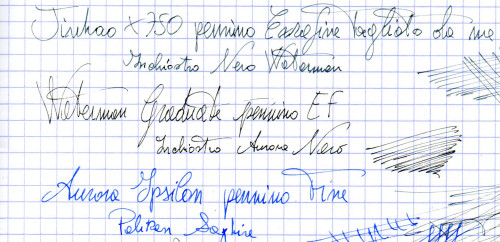 Jinhao X750 pennino Extrafine tagliato da me
Inchiostro Nero Waterman
Waterman Graduate pennino EF
Inchiostro Aurora Nero
Aurora Ypsilon pennino Fine
Pelikan Saphire